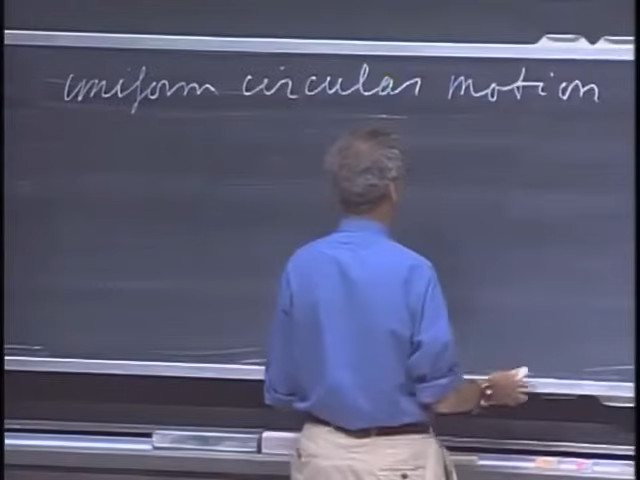 uniform circular motion